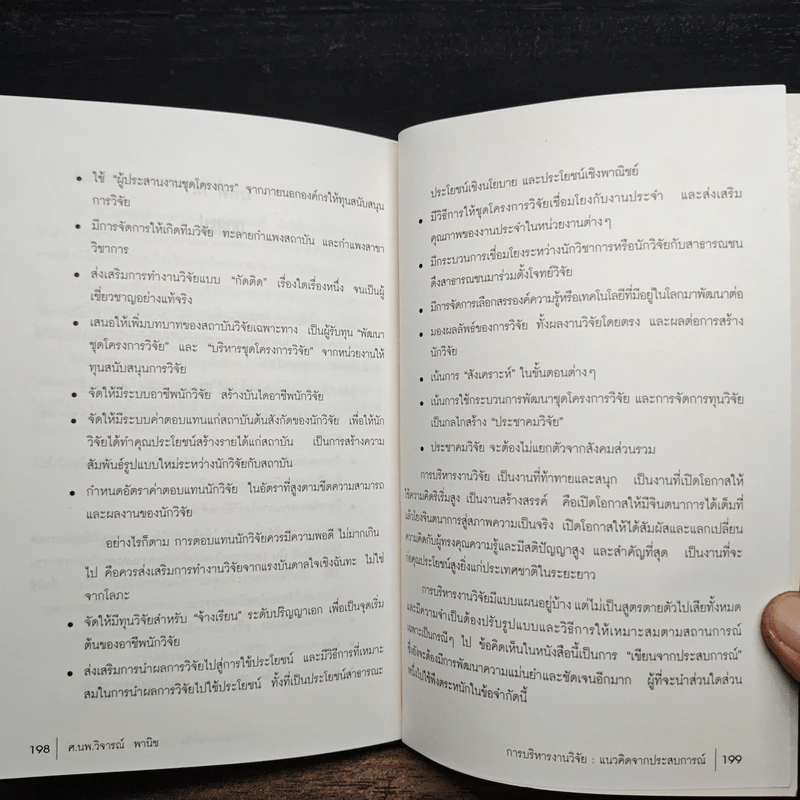 • ใช้ "ผู้ประสานงานชุดโครงการ" จากภายนอกองค์กรให้ทุนสนับสนุน
การวิจัย
• มีการจัดการให้เกิดทีมวิจัย ทะลายกำแพงสถาบัน และกำแพงสาขา
วิชาการ
• ส่งเสริมการทำงานวิจัยแบบ "กัดติด" เรื่องใดเรื่องหนึ่ง จนเป็นผู้
เชี่ยวชาญอย่างแท้จริง
• เสนอให้เพิ่มบทบาทของสถาบันวิจัยเฉพาะทาง เป็นผู้รับทุน "พัฒนา
ชุดโครงการวิจัย" และ "บริหารชุดโครงการวิจัย" จากหน่วยงานให้
ทุนสนับสนุนการวิจัย
• จัดให้มีระบบอาชีพนักวิจัย สร้างบันไดอาชีพนักวิจัย
• จัดให้มีระบบค่าตอบแทนแก่สถาบันต้นสังกัดของนักวิจัย เพื่อให้นัก
วิจัยได้ทำคุณประโยชน์สร้างรายได้แก่สถาบัน เป็นการสร้างความ
สัมพันธ์รูปแบบใหม่ระหว่างนักวิจัยกับสถาบัน
• กำหนดอัตราค่าตอบแทนนักวิจัย ในอัตราที่สูงตามขีดความสามารถ
และผลงานของนักวิจัย
อย่างไรก็ตาม การตอบแทนนักวิจัยควรมีความพอดี ไม่มากเกิน
ไป คือควรส่งเสริมการทำงานวิจัยจากแรงบันดาลใจเชิงฉันทะ ไม่ใช่
จากโลภะ
• จัดให้มีทุนวิจัยสำหรับ "จ้างเรียน" ระดับปริญญาเอก เพื่อเป็นจุดเริ่ม
ต้นของอาชีพนักวิจัย
• ส่งเสริมการนำผลการวิจัยไปสู่การใช้ประโยชน์ และมีวิธีการที่เหมาะ
สมในการนำผลการวิจัยไปใช้ประโยชน์ ทั้งที่เป็นประโยชน์สาธารณะ
198 | ศ.นพ.วิจารณ์ พานิช
ประโยชน์เชิงนโยบาย และประโยชน์เชิงพาณิชย์
• มีวิธีการให้ชุดโครงการวิจัยเชื่อมโยงกับงานประจำ และส่งเสริม
คุณภาพของงานประจำในหน่วยงานต่างๆ
• มีกระบวนการเชื่อมโยงระหว่างนักวิชาการหรือนักวิจัยกับสาธารณชน
ดึงสาธารณชนมาร่วมตั้งโจทย์วิจัย
• มีการจัดการเลือกสรรองค์ความรู้หรือเทคโนโลยีที่มีอยู่ในโลกมาพัฒนาต่อ
• มองผลลัพธ์ของการวิจัย ทั้งผลงานวิจัยโดยตรง และผลต่อการสร้าง
นักวิจัย
• เน้นการ "สังเคราะห์" ในขั้นตอนต่างๆ
• เน้นการใช้กระบวนการพัฒนาชุดโครงการวิจัย และการจัดการทุนวิจัย
เป็นกลไกสร้าง "ประชาคมวิจัย"
• ประชาคมวิจัย จะต้องไม่แยกตัวจากสังคมส่วนรวม
การบริหารงานวิจัย เป็นงานที่ท้าทายและสนุก เป็นงานที่เปิดโอกาสให้
ใช้ความคิดริเริ่มสูง เป็นงานสร้างสรรค์ คือเปิดโอกาสให้มีจินตนาการได้เต็มที่
แล้วโยงจินตนาการสู่สภาพความเป็นจริง เปิดโอกาสให้ได้สัมผัสและแลกเปลี่ยน
ความคิดกับผู้ทรงคุณความรู้และมีสติปัญญาสูง และสำคัญที่สุด เป็นงานที่จะ
ก่อคุณประโยชน์สูงยิ่งแก่ประเทศชาติในระยะยาว
การบริหารงานวิจัยมีแบบแผนอยู่บ้าง แต่ไม่เป็นสูตรตายตัวไปเสียทั้งหมด
และมีความจำเป็นต้องปรับรูปแบบและวิธีการให้เหมาะสมตามสถานการณ์
เฉพาะเป็นกรณีๆ ไป ข้อคิดเห็นในหนังสือนี้เป็นการ "เขียนจากประสบการณ์"
ซึ่งยังจะต้องมีการพัฒนาความแม่นยำและชัดเจนอีกมาก ผู้ที่จะนำส่วนใดส่วน
หนึ่งไปใช้พึงตระหนักในข้อจำกัดนี้
การบริหารงานวิจัย : แนวคิดจากประสบการณ์ | 199